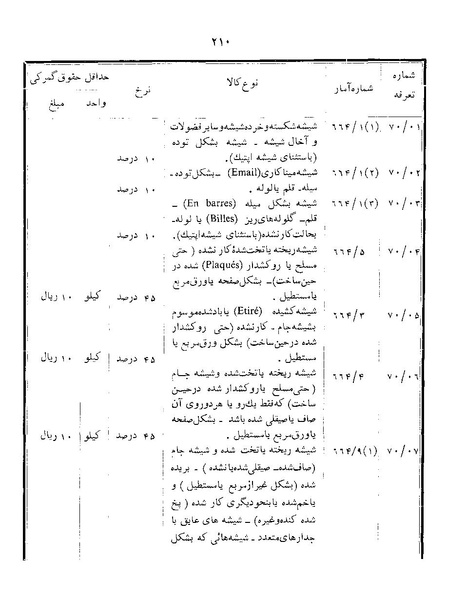 ۲۱۰
شماره تعرفه
شماره آمار
نوع کالا
نرخ
حداقل حقوق گمرکی
واحد
مبلغ
۷۰/۰۱ ۶۶۴/۱(۱) شیشه شکسته و خرده شیشه و سایر فضولات
و آخال شیشه ـ شیشه بشکل توده
(باستثنای شیشه اپتیک). ۱۰ درصد
۷۰/۰۲ ۶۶۴/۱(۲) شیشه میناکاری (Email) ـ بشکل توده ـ
میله ـ قلم یا لوله . ۱۰ درصد
۷۰/۰۳ ۶۶۴/۱(۳) شیشه بشکل میله (En barres) ـ
قلم ـ گلوله‌های ریز (Billes) یا لوله ـ
بحالت کار نشده (باستثنای شیشه اپتیک). ۱۰ درصد
۷۰/۰۴ ۶۶۴/۵ شیشه ریخته یا تخت شدهٔ کار نشده (حتی
مسلح یا روکشدار (Plaqués) شده در
حین ساخت) ـ بشکل صفحه یا ورق مربع
یا مستطیل . ۴۵ درصد کیلو ۱۰ ریال
۷۰/۰۵ ۶۶۴/۳ شیشه کشیده (Etiré) یا باد شده موسوم
بشیشه جام ـ کار نشده (حتی روکشدار
شده در حین ساخت) بشکل ورق مربع یا
مستطیل . ۴۵ درصد کیلو ۱۰ ریال
۷۰/۰۶ ۶۶۴/۴ شیشه ریخته یا تخت شده و شیشه جام
(حتی مسلح یا روکشدار شده در حین
ساخت) که فقط یک رو یا هر دو روی آن
صاف یا صیقلی شده باشد ـ بشکل صفحه
یا ورق مربع یا مستطیل . ۴۵ درصد کیلو ۱۰ ریال
۷۰/۰۷ ۶۶۴/۹(۱) شیشه ریخته یا تخت شده و شیشه جام
(صاف شده ـ صیقلی شده یا نشده) ـ بریده
شده (بشکل غیر از مربع یا مستطیل) و
یا خم شده یا بنحو دیگری کار شده (پخ
شده کنده و غیره) ـ شیشه های عایق با
جدارهای متعدد ـ شیشه‌هائی که بشکل